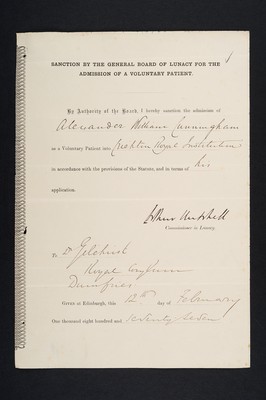 1
SANCTION BY THE GENERAL BOARD OF LUNACY FOR THE
ADMISSION OF A VOLUNTARY PATIENT.
By Authority of the Board, I hereby sanction the admission of
Alexander William Cunningham
as a Voluntary Patient into Crichton Royal Institution
in accordance with the provisions of the Statute, and in terms of his
application.
Arthur Mitchell
Commissioner in Lunacy.
To Dr Gilchrist
Royal Asylum
Dumfries
Given at Edinburgh, this 12th day of February
One thousand eight hundred and seventy seven